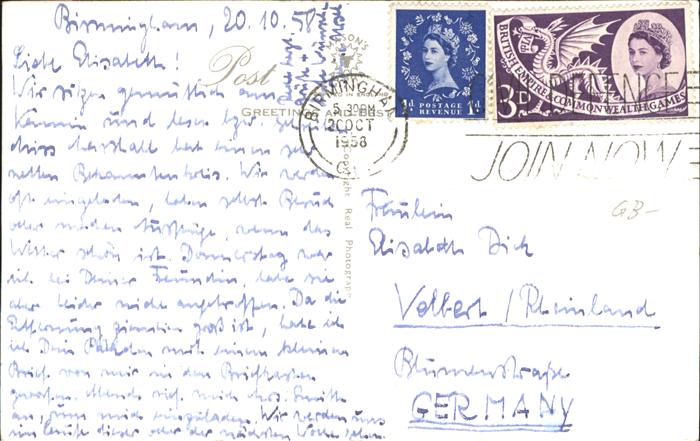 Birmingham, 20.10.58
Liebe Elisabeth!
Wir sitzen gemütlich am
Kamin und lesen bzw.
hat einen sehr
netten Bekanntenkreis. Wir werden
oft eingeladen, haben selbst Besuch
oder machen Ausflüge, wenn das
Wetter schön ist. Donnerstag war
ich bei Deiner Freundin, habe sie
aber leider nicht angetroffen. Da die
Entfernung ziemlich groß ist, habe ich
ich Dein Päckchen mit einem kleinen
Brief von mir in den Briefkasten
geworfen. Abends rief mich Mrs. Smith
an, um mich einzuladen. Wir werden uns
im Laufe dieser oder der nächsten Woche sehen.
Post
GREETINGS
BIRMINGHAM
5.30PM
20 OCT
1958
POSTAGE
REVENUE
1D
BRITISH EMPIRE & COMMONWEALTH GAMES
3D
JOIN NOW
Copyright Real Photograph
GB-
Fräulein
Elisabeth Dick
Velbert / Rheinland
Blumenstraße
GERMANY